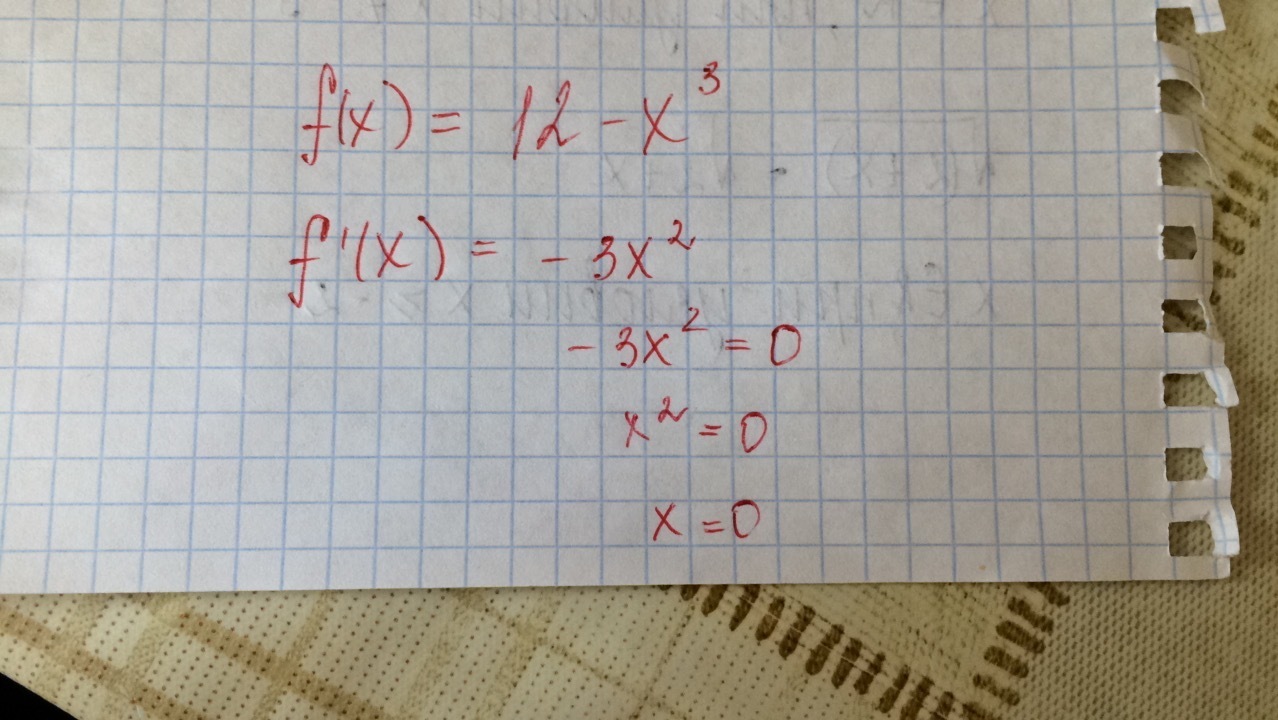 f(x) = 12 - x³
f'(x) = - 3x²
- 3x² = 0
x² = 0
x = 0